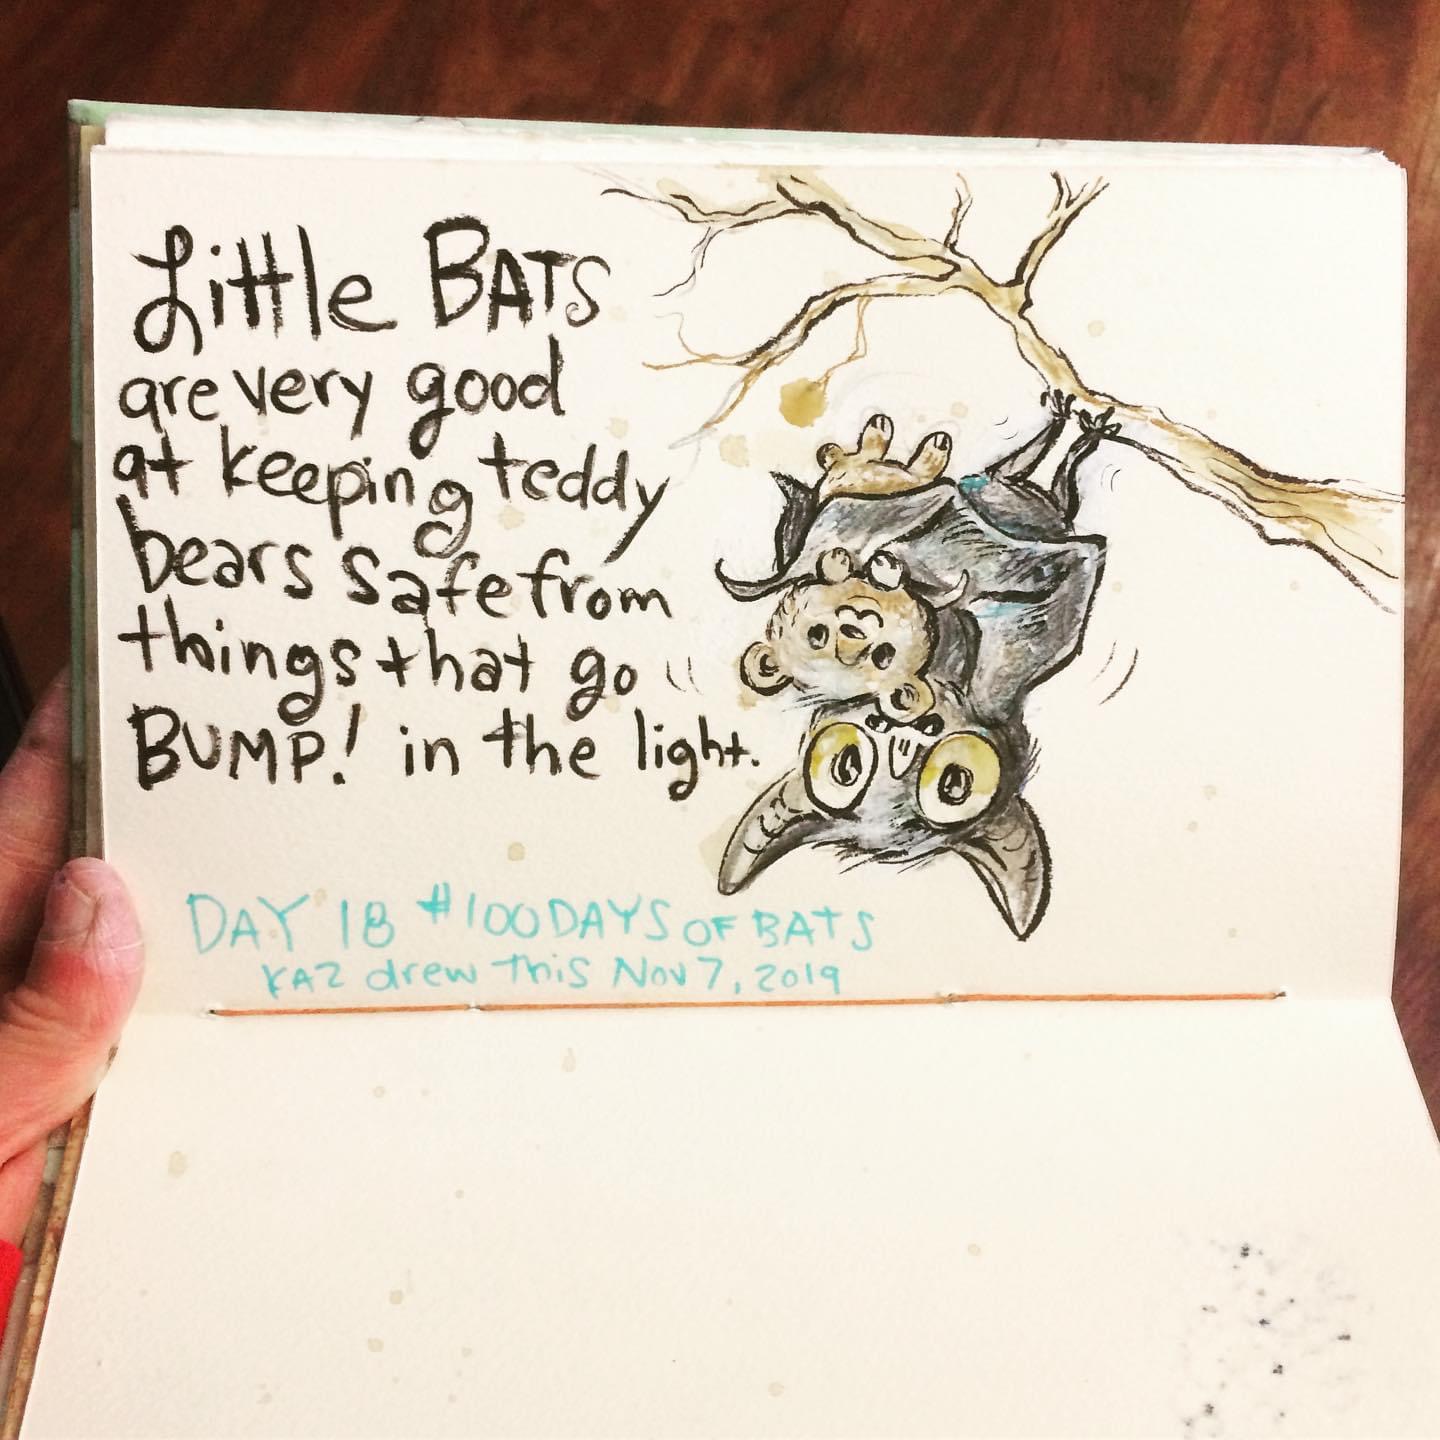 Little BATS
are very good
at keeping teddy
bears safe from
things that go
BUMP! in the light.
DAY 18 #100DAYS OF BATS
KAZ drew this Nov 7, 2019